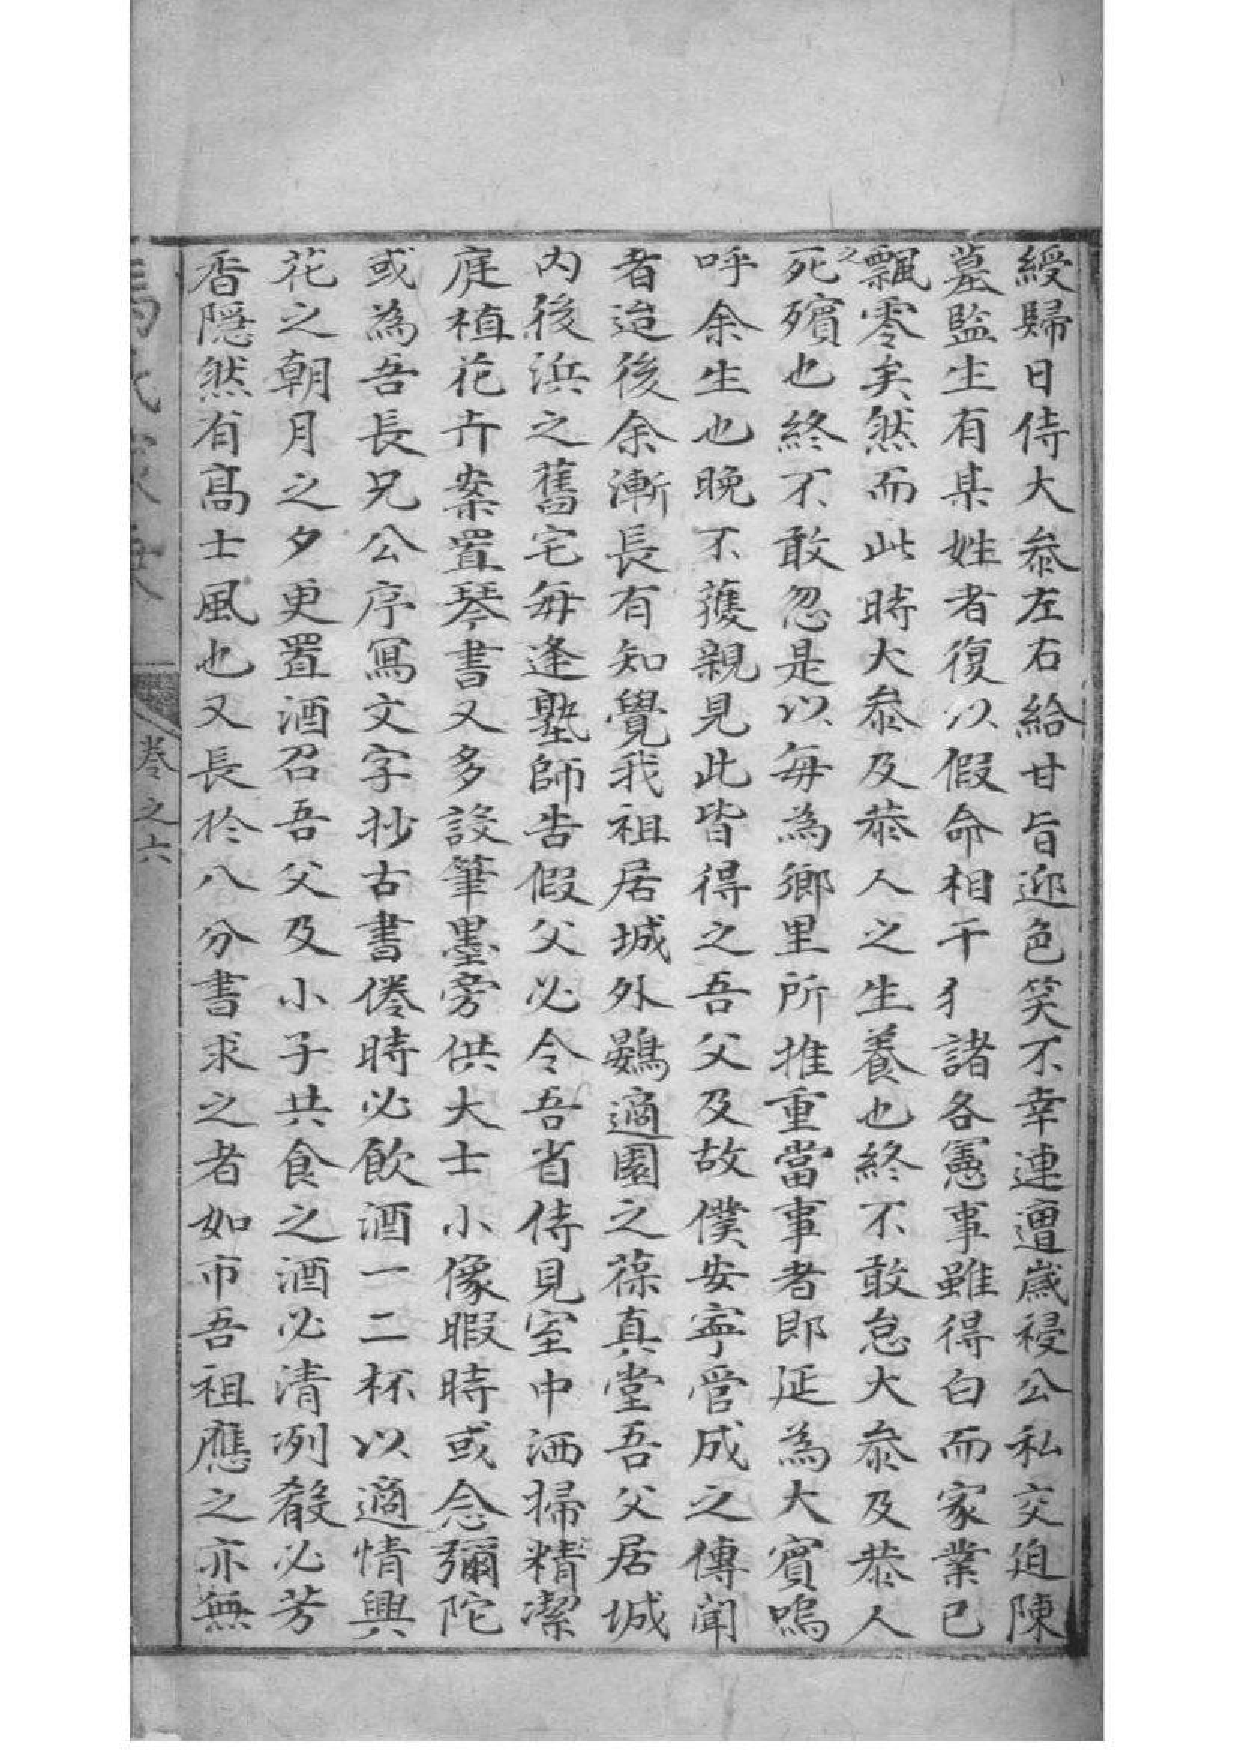 綬歸日侍大叅左右給甘旨迎色笑不幸連遭歲祲公私交迫陳
墓監生有某姓者復以假命相干犭諸各憲事雖得白而家業已
飄零矣然而此時大叅及恭人之生養也終不敢怠大叅及恭人
之死殯也終不敢忽是以每為鄉里所推重當事者即延為大賓嗚
呼余生也晚不獲親見此皆得之吾父及故僕安寧管成之傳聞
者迨後余漸長有知覺我祖居城外鷃適園之葆真堂吾父居城
內後浜之舊宅每逢塾師告假父必令吾省侍見室中洒掃精潔
庭植花卉案置琴書又多設筆墨旁供大士小像暇時或念彌陀
或為吾長兄公序寫文字抄古書倦時必飲酒一二杯以適情興
花之朝月之夕更置酒召吾父及小子共食之酒必清冽殽必芳
香隱然有高士風也又長於八分書求之者如市吾祖應之亦無
卷之六